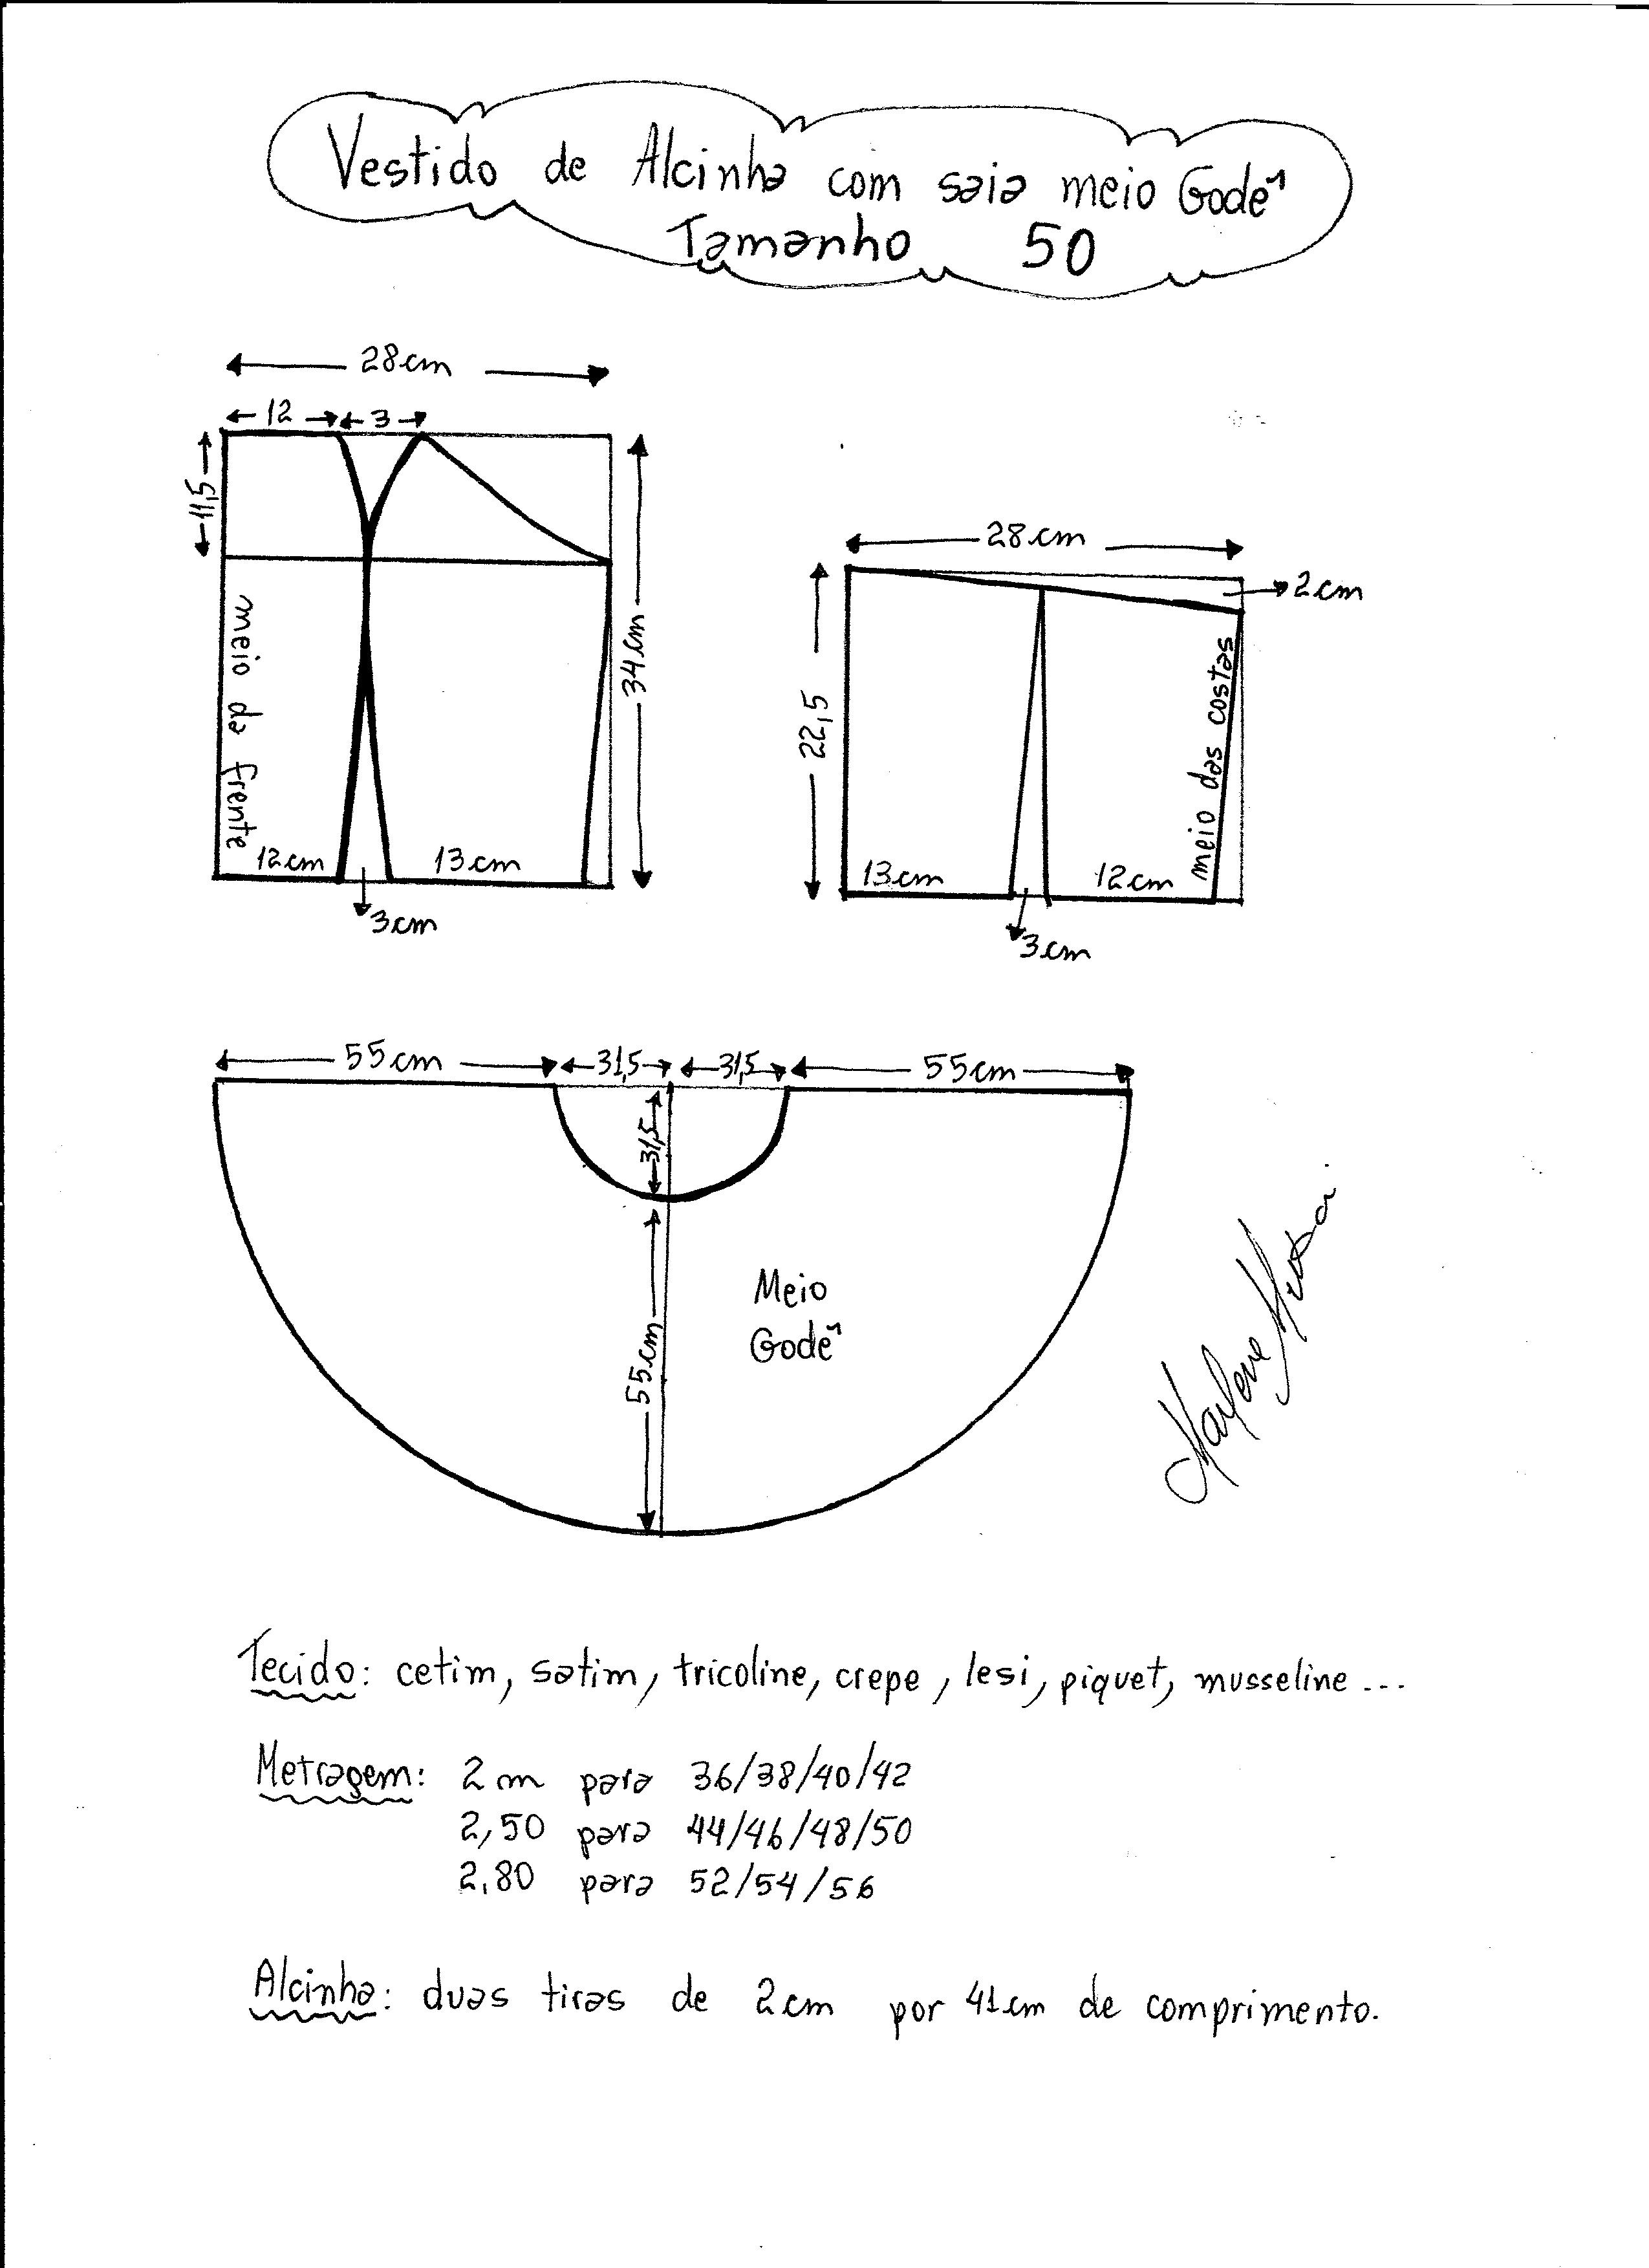 Vestido de Alcinha com saia meio Godê
Tamanho 50
28cm
12 3
11,5
34cm
meio da frente
12cm 13cm
3cm
28cm
2cm
22,5
meio das costas
13cm 12cm
3cm
55cm 31,5 31,5 55cm
31,5
55cm
Meio
Godê
Tecido: cetim, satim, tricoline, crepe, lesi, piquet, musseline...
Metragem: 2m para 36/38/40/42
2,50 para 44/46/48/50
2,80 para 52/54/56
Alcinha: duas tiras de 2cm por 41cm de comprimento.